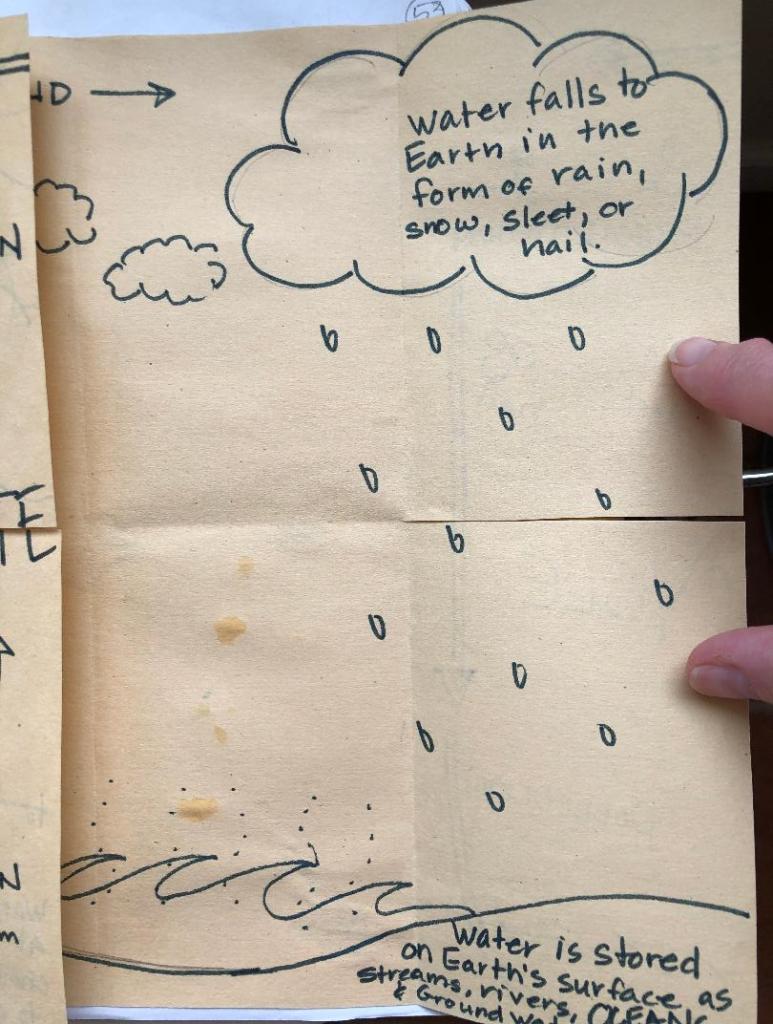 53
Water falls to
Earth in the
form of rain,
snow, sleet, or
hail.
Water is stored
on Earth's surface as
streams, rivers, OCEANS
& Ground